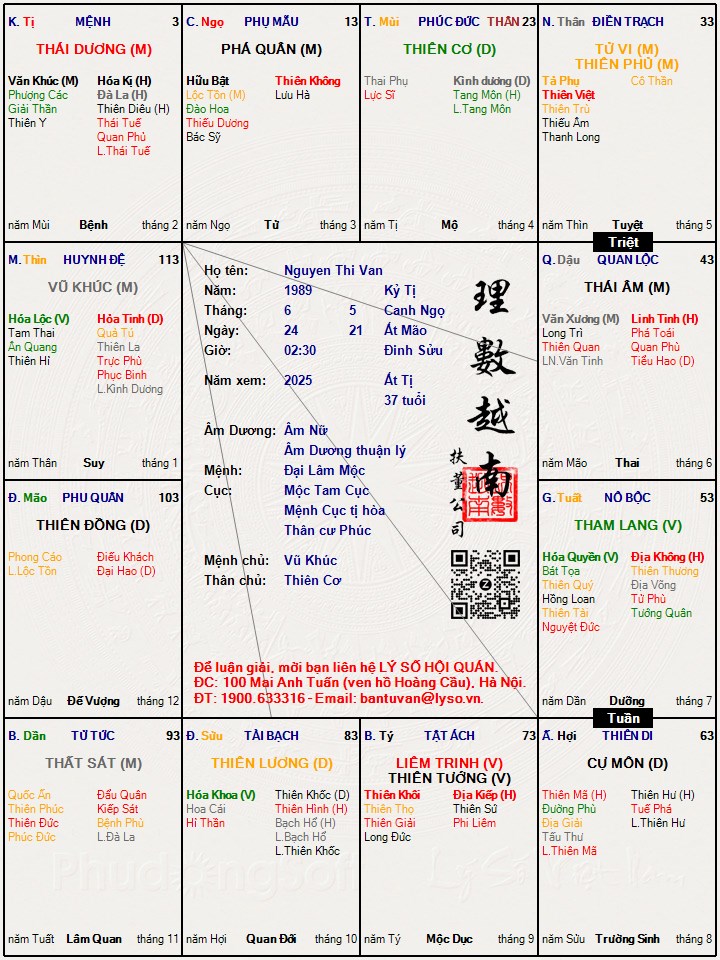 K. Tị MỆNH 3
THÁI DƯƠNG (M)
Văn Khúc (M) Hóa Kị (H)
Phượng Các Đà La (H)
Giải Thần Thiên Diêu (H)
Thiên Y Thái Tuế
Quan Phủ
L.Thái Tuế
năm Mùi Bệnh tháng 2
C. Ngọ PHỤ MẪU 13
PHÁ QUÂN (M)
Hữu Bật Thiên Không
Lộc Tồn (M) Lưu Hà
Đào Hoa
Thiếu Dương
Bác Sỹ
năm Ngọ Tử tháng 3
T. Mùi PHÚC ĐỨC THÂN 23
THIÊN CƠ (D)
Thai Phụ Kình dương (D)
Lực Sĩ Tang Môn (H)
L.Tang Môn
năm Tị Mộ tháng 4
N. Thân ĐIỀN TRẠCH 33
TỬ VI (M)
THIÊN PHỦ (M)
Tả Phụ Cô Thần
Thiên Việt
Thiên Trù
Thiếu Âm
Thanh Long
năm Thìn Tuyệt tháng 5
Triệt
M. Thìn HUYNH ĐỆ 113
VŨ KHÚC (M)
Hóa Lộc (V) Hỏa Tinh (D)
Tam Thai Quả Tú
Ân Quang Thiên La
Thiên Hỉ Trực Phù
Phục Binh
L.Kình Dương
năm Thân Suy tháng 1
Họ tên: Nguyen Thi Van
Năm: 1989 Kỷ Tị
Tháng: 6 5 Canh Ngọ
Ngày: 24 21 Ất Mão
Giờ: 02:30 Đinh Sửu
Năm xem: 2025 Ất Tị
37 tuổi
Âm Dương: Âm Nữ
Âm Dương thuận lý
Mệnh: Đại Lâm Mộc
Cục: Mộc Tam Cục
Mệnh Cục tị hòa
Thân cư Phúc
Mệnh chủ: Vũ Khúc
Thân chủ: Thiên Cơ
理數越南
扶董公司
Để luận giải, mời bạn liên hệ LÝ SỐ HỘI QUÁN.
ĐC: 100 Mai Anh Tuấn (ven hồ Hoàng Cầu), Hà Nội.
ĐT: 1900.633316 - Email: bantuvan@lyso.vn.
Q. Dậu QUAN LỘC 43
THÁI ÂM (M)
Văn Xương (M) Linh Tinh (H)
Long Trì Phá Toái
Thiên Quan Quan Phù
LN.Văn Tinh Tiểu Hao (D)
năm Mão Thai tháng 6
Đ. Mão PHU QUÂN 103
THIÊN ĐỒNG (D)
Phong Cáo Điếu Khách
L.Lộc Tồn Đại Hao (D)
năm Dậu Đế Vượng tháng 12
G. Tuất NÔ BỘC 53
THAM LANG (V)
Hóa Quyền (V) Địa Không (H)
Bát Tọa Thiên Thương
Thiên Quý Địa Võng
Hồng Loan Tử Phù
Thiên Tài Tướng Quân
Nguyệt Đức
năm Dần Dưỡng tháng 7
Tuần
B. Dần TỬ TỨC 93
THẤT SÁT (M)
Quốc Ấn Đẩu Quân
Thiên Phúc Kiếp Sát
Thiên Đức Bệnh Phù
Phúc Đức L.Đà La
năm Tuất Lâm Quan tháng 11
Đ. Sửu TÀI BẠCH 83
THIÊN LƯƠNG (D)
Hóa Khoa (V) Thiên Khốc (D)
Hoa Cái Thiên Hình (H)
Hỉ Thần Bạch Hổ (H)
L.Bạch Hổ
L.Thiên Khốc
năm Hợi Quan Đới tháng 10
B. Tý TẬT ÁCH 73
LIÊM TRINH (V)
THIÊN TƯỚNG (V)
Thiên Khôi Địa Kiếp (H)
Thiên Thọ Thiên Sứ
Thiên Giải Phi Liêm
Long Đức
năm Tý Mộc Dục tháng 9
Ấ. Hợi THIÊN DI 63
CỰ MÔN (D)
Thiên Mã (H) Thiên Hư (H)
Đường Phù Tuế Phá
Địa Giải L.Thiên Hư
Tấu Thư
L.Thiên Mã
năm Sửu Trường Sinh tháng 8